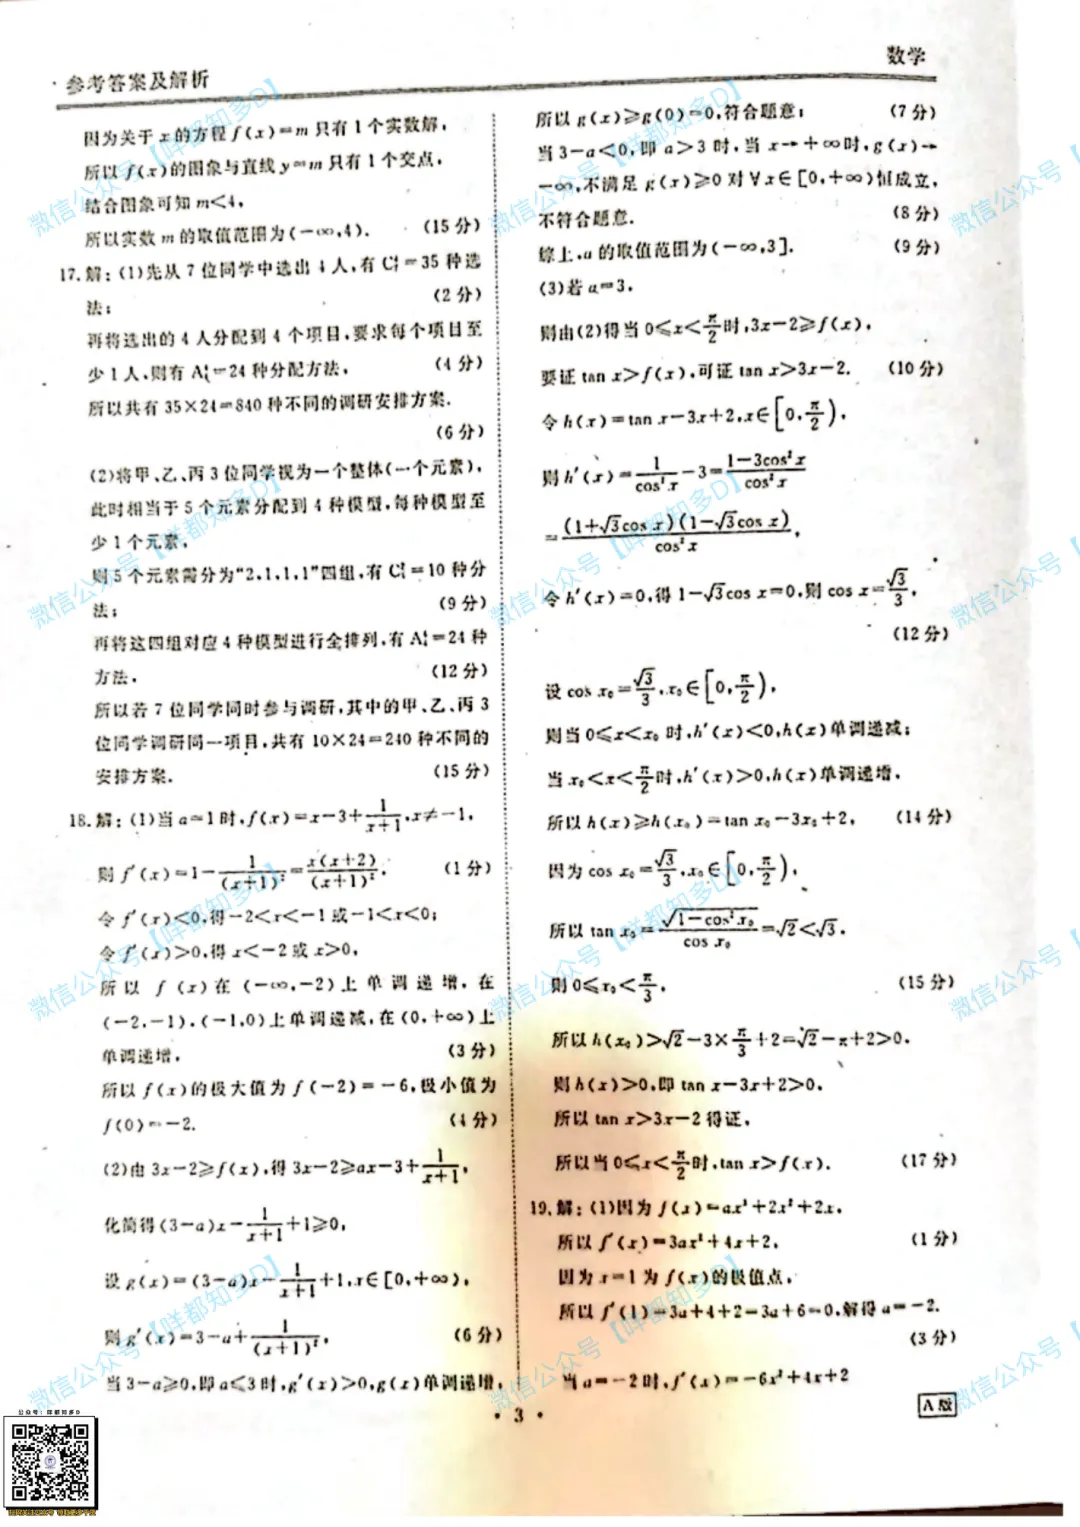 参考答案及解析
数学
因为关于x的方程f(x)=m只有1个实数解,
所以f(x)的图象与直线y=m只有1个交点,
结合图象可知m<4,
所以实数m的取值范围为(-∞,4). (15分)
17.解:(1)先从7位同学中选出4人,有C₇⁴=35种选
法; (2分)
再将选出的4人分配到4个项目,要求每个项目至
少1人,则有A₄⁴=24种分配方法, (4分)
所以共有35×24=840种不同的调研安排方案.
(6分)
(2)将甲、乙、丙3位同学视为一个整体(一个元素),
此时相当于5个元素分配到4种模型,每种模型至
少1个元素,
则5个元素需分为“2,1,1,1”四组,有C₅²=10种分
法; (9分)
再将这四组对应4种模型进行全排列,有A₄⁴=24种
方法. (12分)
所以若7位同学同时参与调研,其中的甲、乙、丙3
位同学调研同一项目,共有10×24=240种不同的
安排方案. (15分)
18.解:(1)当a=1时,f(x)=x-3+1/(x+1),x≠-1,
则f′(x)=1-1/(x+1)²=x(x+2)/(x+1)². (1分)
令f′(x)<0,得-2<x<-1或-1<x<0;
令f′(x)>0,得x<-2或x>0,
所以f(x)在(-∞,-2)上单调递增,在
(-2,-1),(-1,0)上单调递减,在(0,+∞)上
单调递增, (3分)
所以f(x)的极大值为f(-2)=-6,极小值为
f(0)=-2. (4分)
(2)由3x-2≥f(x),得3x-2≥ax-3+1/(x+1),
化简得(3-a)x-1/(x+1)+1≥0,
设g(x)=(3-a)x-1/(x+1)+1,x∈[0,+∞),
则g′(x)=3-a+1/(x+1)², (6分)
当3-a≥0,即a≤3时,g′(x)>0,g(x)单调递增,
所以g(x)≥g(0)=0,符合题意; (7分)
当3-a<0,即a>3时,当x→+∞时,g(x)→
-∞,不满足g(x)≥0对∀x∈[0,+∞)恒成立,
不符合题意. (8分)
综上,a的取值范围为(-∞,3]. (9分)
(3)若a=3,
则由(2)得当0≤x<π/2时,3x-2≥f(x),
要证tan x>f(x),可证tan x>3x-2. (10分)
令h(x)=tan x-3x+2,x∈[0,π/2),
则h′(x)=1/cos²x-3=(1-3cos²x)/cos²x
=(1+√3cos x)(1-√3cos x)/cos²x,
令h′(x)=0,得1-√3cos x=0,则cos x=√3/3,
(12分)
设cos x₀=√3/3,x₀∈[0,π/2),
则当0≤x<x₀时,h′(x)<0,h(x)单调递减;
当x₀<x<π/2时,h′(x)>0,h(x)单调递增,
所以h(x)≥h(x₀)=tan x₀-3x₀+2, (14分)
因为cos x₀=√3/3,x₀∈[0,π/2),
所以tan x₀=√(1-cos²x₀)/cos x₀=√2<√3,
则0≤x₀<π/3, (15分)
所以h(x₀)>√2-3×π/3+2=√2-π+2>0,
则h(x)>0,即tan x-3x+2>0,
所以tan x>3x-2得证,
所以当0≤x<π/2时,tan x>f(x). (17分)
19.解:(1)因为f(x)=ax³+2x²+2x,
所以f′(x)=3ax²+4x+2, (1分)
因为x=1为f(x)的极值点,
所以f′(1)=3a+4+2=3a+6=0,解得a=-2.
(3分)
当a=-2时,f′(x)=-6x²+4x+2
·3·
A版
微信公众号【咩都知多D】
公众号:咩都知多D